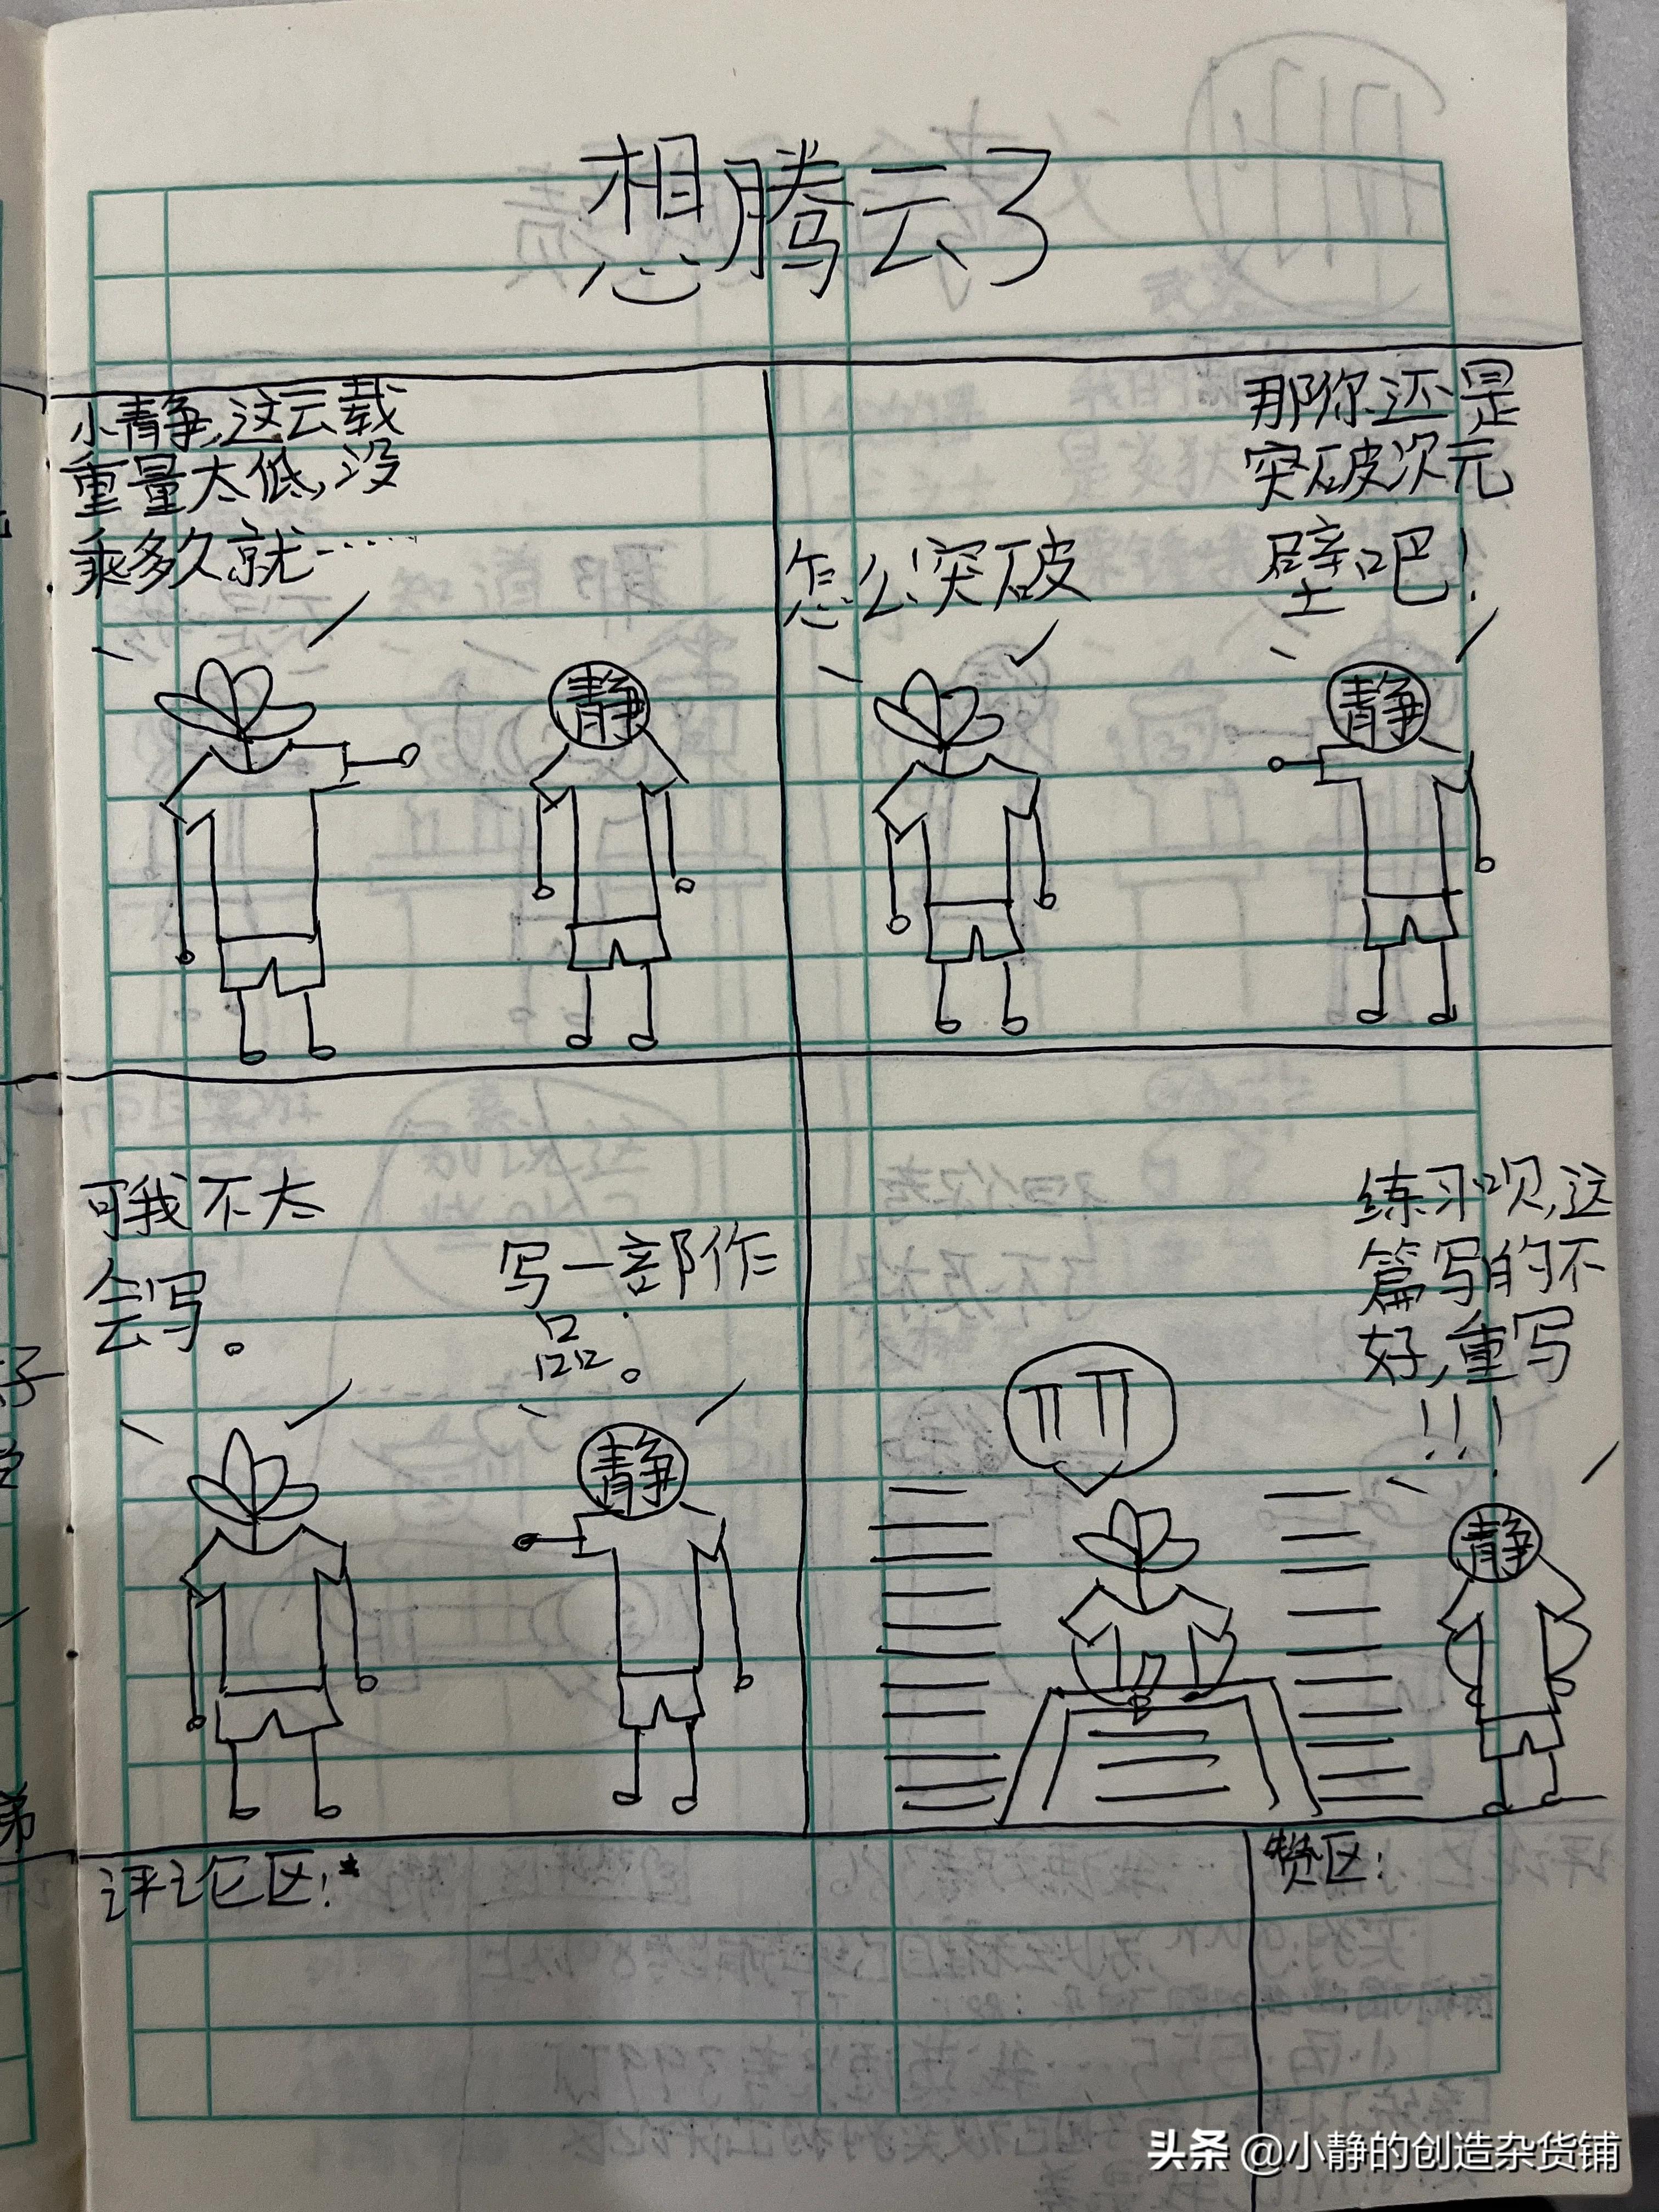 想腾云了
小静,这云载
重量太低,没
乘多久就……
静
那你还是
突破次元
壁吧!
怎么突破
静
可我不太
会写。
写一部作
品。
静
练习呗,这
篇写的不
好,重写
!!!
静
评论区:
赞区:
头条 @小静的创造杂货铺